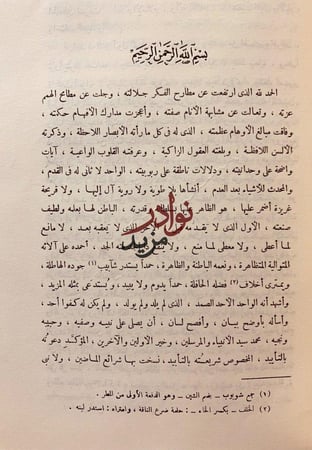 بسم الله الرحمن الرحيم
الحمد لله الذى ارتفعت عن مطارح الفكر جلالته ، وجلت عن مطامح الهمم
عزته ، وتعالت عن مشابهة الأنام صفته ، وأعجزت مدارك الأفهام حكمته ،
وفاقت مبالغ الأوهام عظمته ، الذى له فى كل ما رأته الأبصار اللاحظة ، وذكرته
الألسن اللافظة ، وبلغته العقول الزاكية ، وعرفته القلوب الواعية ، آيات
واضحة على وحدانيته ، ودلالات ناطقة على ربوبيته ، الواحد لا ثانى له فى القدم ،
والمحدث للأشياء بعد العدم ، أنشأها بلا طوية ولا روية آل إليها ، ولا قريحة
غريزة أضمر عليها ، هو الظاهر وقدرته ، الباطن لها بعلمه ولطيف
صنعته ، الأول الذى لا يتقدمه الذى لا يعقبه بعد ، لا مانع
لما أعطى ، ولا معطى لما منع ، الجد ، أحمده على آلائه
المتوالية المتظاهرة ، ونعمه الباطنة والظاهرة ، حمداً يستدر شآبيب (١) جوده الهاطلة ،
ويمترى أخلاف (٢) فضله الحافلة ، حمداً يدوم ولا يبيد ، ويستدعى بمثله المزيد ،
وأشهد أنه الواحد الأحد الصمد ، الذى لم يلد ولم يولد ، ولم يكن له كفوا أحد ،
وأسأله بأوضح بيان ، وأفصح لسان ، أن يصلى على نبيه وصفيه ، وحبيبه
ونجيه ، محمد سيد الأنبياء والمرسلين ، وخير الأولين والآخرين ، المؤكد دعوته
بالتأييد ، المخصوص شريعته بالتأبيد ، نسخت بها شرائع الماضين ، ولا نبى
(١) جمع شؤبوب ـ بضم الشين ـ وهو الدفعة الأولى من المطر .
(٢) الخلف ـ بكسر الخاء ـ : حلمة ضرع الناقة ، وامتراه : استدر لبنه .
نوادر
مزيد